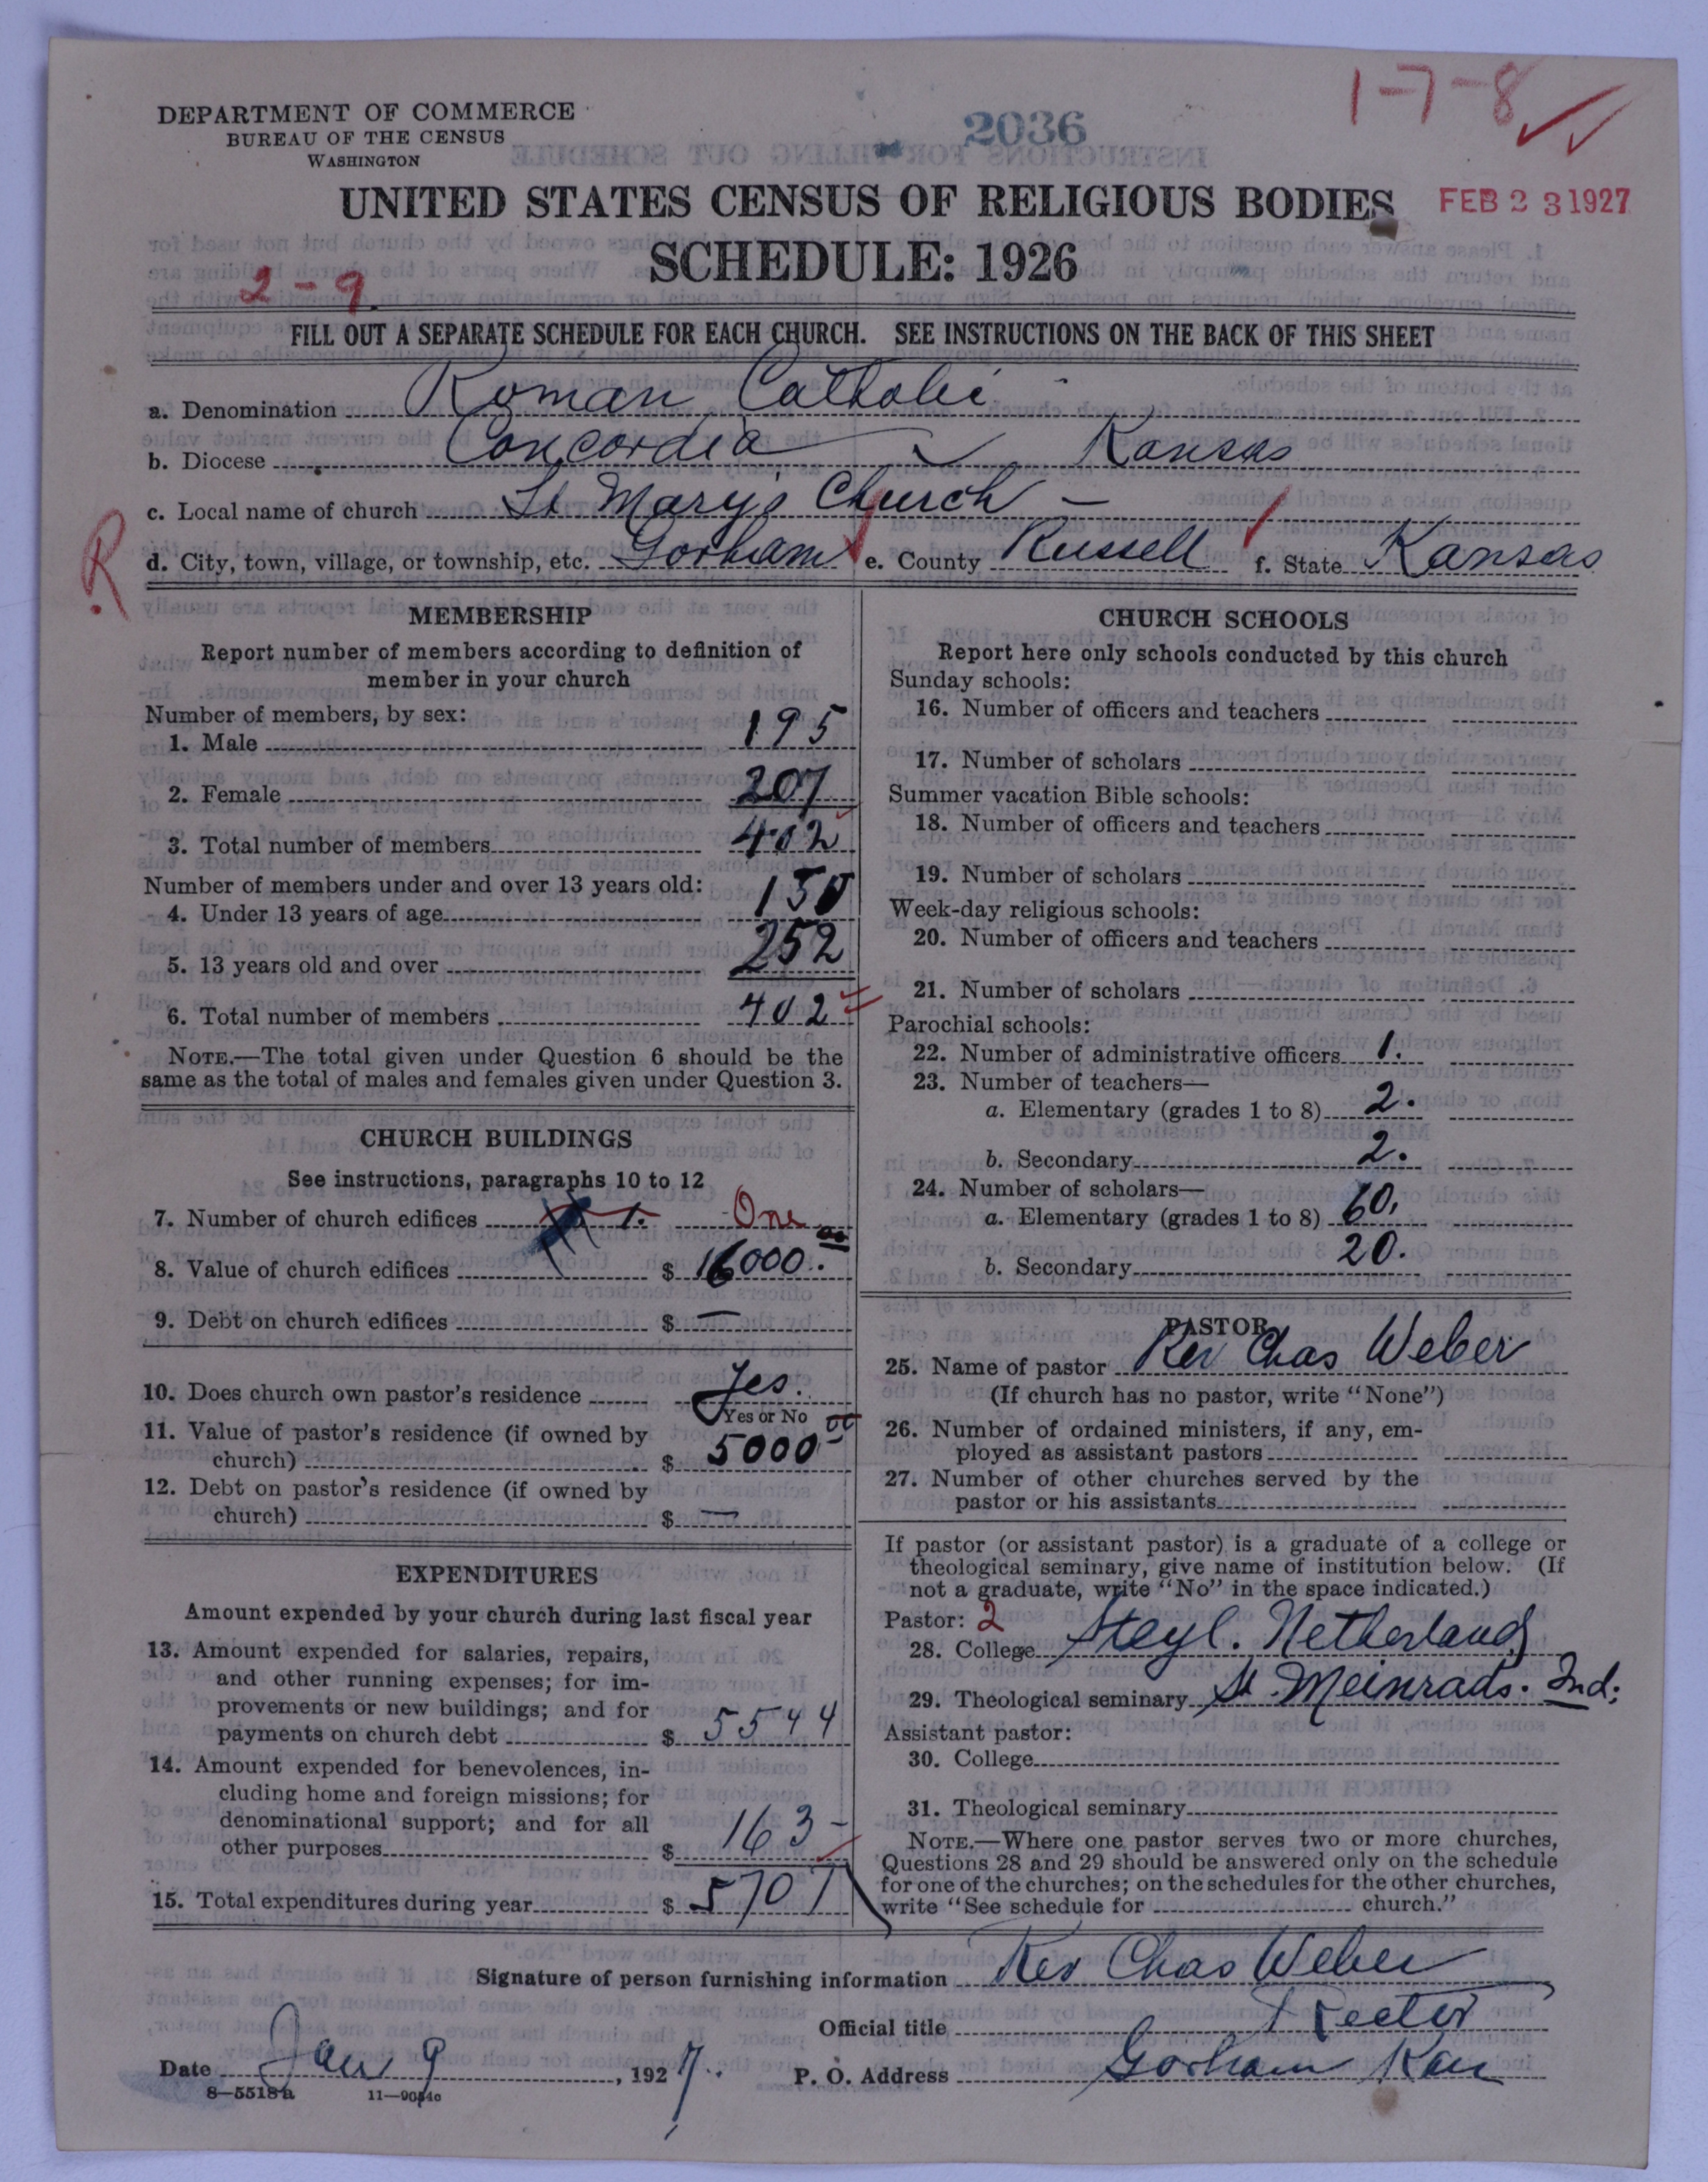 1-7-8
DEPARTMENT OF COMMERCE
BUREAU OF THE CENSUS
WASHINGTON
2036
UNITED STATES CENSUS OF RELIGIOUS BODIES
FEB 23 1927
SCHEDULE: 1926
2-9.
FILL OUT A SEPARATE SCHEDULE FOR EACH CHURCH. SEE INSTRUCTIONS ON THE BACK OF THIS SHEET
a. Denomination Roman Catholic
b. Diocese Concordia Kansas
c. Local name of church St Mary's Church
R
d. City, town, village, or township, etc. Gorham e. County Russell f. State Kansas
MEMBERSHIP
Report number of members according to definition of
member in your church
Number of members, by sex:
1. Male 195
2. Female 207
3. Total number of members 402
Number of members under and over 13 years old:
4. Under 13 years of age 150
5. 13 years old and over 252
6. Total number of members 402
NOTE.—The total given under Question 6 should be the
same as the total of males and females given under Question 3.
CHURCH BUILDINGS
See instructions, paragraphs 10 to 12
7. Number of church edifices 1. One
8. Value of church edifices $ 16000.00
9. Debt on church edifices $ —
10. Does church own pastor's residence Yes.
Yes or No
11. Value of pastor's residence (if owned by
church) $ 5000 00
12. Debt on pastor's residence (if owned by
church) $ —
EXPENDITURES
Amount expended by your church during last fiscal year
13. Amount expended for salaries, repairs,
and other running expenses; for im-
provements or new buildings; and for
payments on church debt $ 5544
14. Amount expended for benevolences, in-
cluding home and foreign missions; for
denominational support; and for all
other purposes $ 163-
15. Total expenditures during year $ 5707
CHURCH SCHOOLS
Report here only schools conducted by this church
Sunday schools:
16. Number of officers and teachers
17. Number of scholars
Summer vacation Bible schools:
18. Number of officers and teachers
19. Number of scholars
Week-day religious schools:
20. Number of officers and teachers
21. Number of scholars
Parochial schools:
22. Number of administrative officers 1.
23. Number of teachers—
a. Elementary (grades 1 to 8) 2.
b. Secondary 2.
24. Number of scholars—
a. Elementary (grades 1 to 8) 60.
b. Secondary 20.
PASTOR
25. Name of pastor Rev Chas Weber
(If church has no pastor, write "None")
26. Number of ordained ministers, if any, em-
ployed as assistant pastors
27. Number of other churches served by the
pastor or his assistants
If pastor (or assistant pastor) is a graduate of a college or
theological seminary, give name of institution below. (If
not a graduate, write "No" in the space indicated.)
Pastor: 2
28. College Steyl. Netherlands
29. Theological seminary St Meinrads. Ind.
Assistant pastor:
30. College
31. Theological seminary
NOTE.—Where one pastor serves two or more churches,
Questions 28 and 29 should be answered only on the schedule
for one of the churches; on the schedules for the other churches,
write "See schedule for church."
Signature of person furnishing information Rev Chas Weber
Official title Rector
Date Jan 9, 1927. P. O. Address Gorham Kan
8-5518a 11-9054c